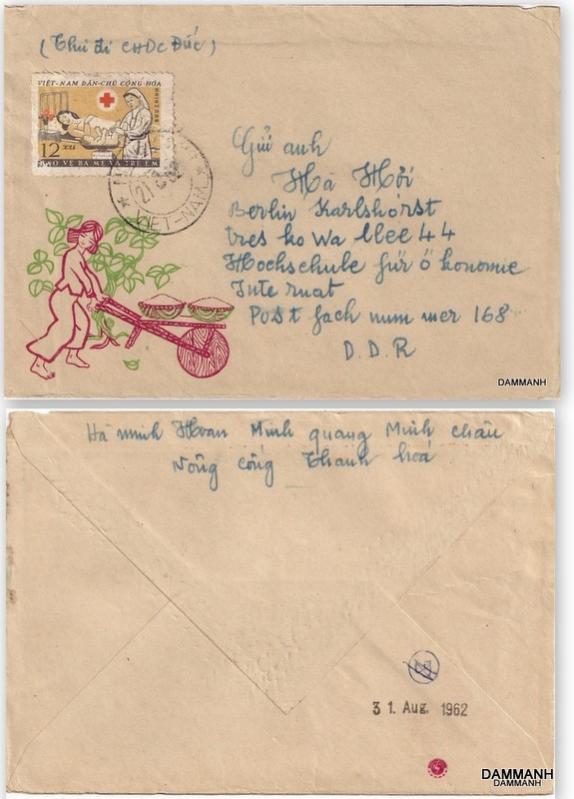 (Thư đi CHDC Đức)
VIỆT-NAM DÂN-CHỦ CỘNG-HÒA
BƯU CHÍNH
12 XU
BẢO VỆ BÀ MẸ VÀ TRẺ EM
21
62
VIỆT-NAM
Gửi anh
Hà Hởi
Berlin Karlshorst
tres ko Wa llee 44
Hochschule für ö konomie
Inte rnat
Post fach num mer 168
D.D.R
DAMMANH
Hà minh Hoan Minh quang Minh châu
Nông cống Thanh hoá
31. Aug. 1962
DAMMANH
DAMMANH